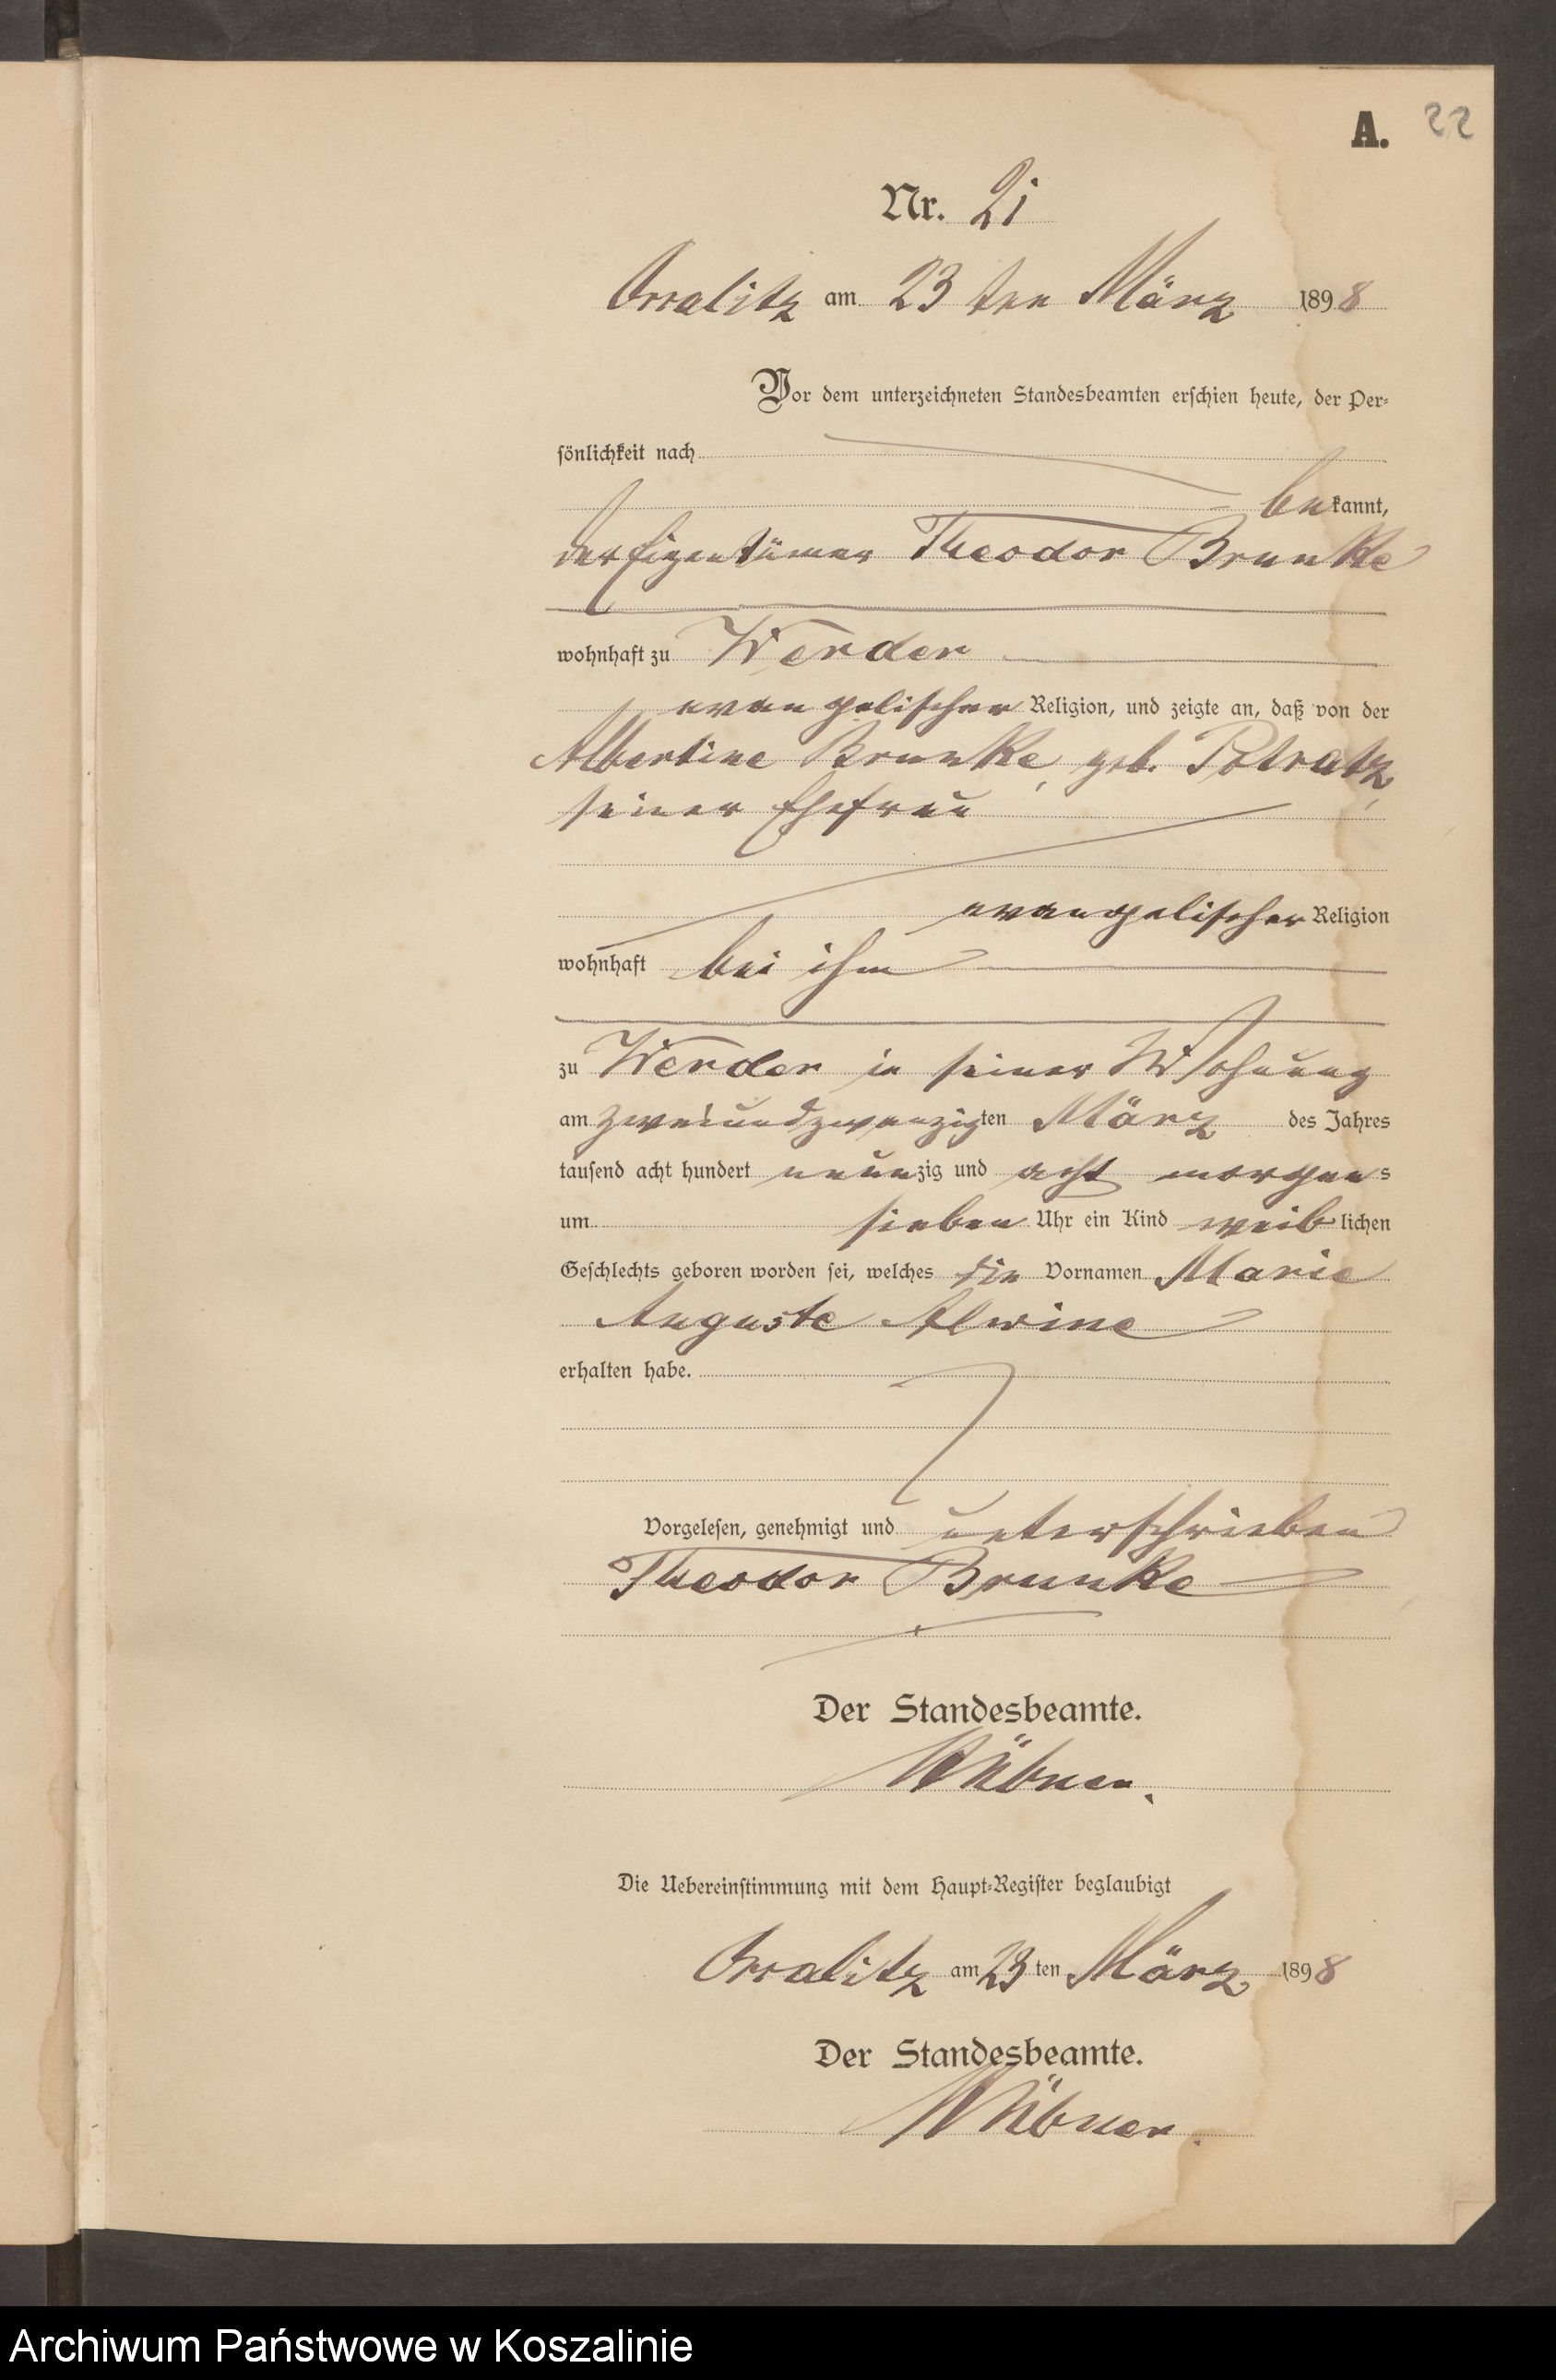 A. 22
Nr. 21
Orralitz am 23 ten März 1898
Vor dem unterzeichneten Standesbeamten erschien heute, der Per-
sönlichkeit nach
bekannt,
der Eigentümer Theodor Brunke
wohnhaft zu Werder
evangelischer Religion, und zeigte an, daß von der
Albertine Brunke, geb. Potratz,
seiner Ehefrau
evangelischer Religion
wohnhaft bei ihm
zu Werder in seiner Wohnung
am zweiundzwanzigten März des Jahres
tausend acht hundert neunzig und acht morgens
um sieben Uhr ein Kind weiblichen
Geschlechts geboren worden sei, welches die Vornamen Marie
Auguste Alwine
erhalten habe.
Vorgelesen, genehmigt und unterschrieben
Theodor Brunke
Der Standesbeamte.
Die Uebereinstimmung mit dem Haupt-Register beglaubigt
Orralitz am 23 ten März 1898
Der Standesbeamte.
Archiwum Państwowe w Koszalinie